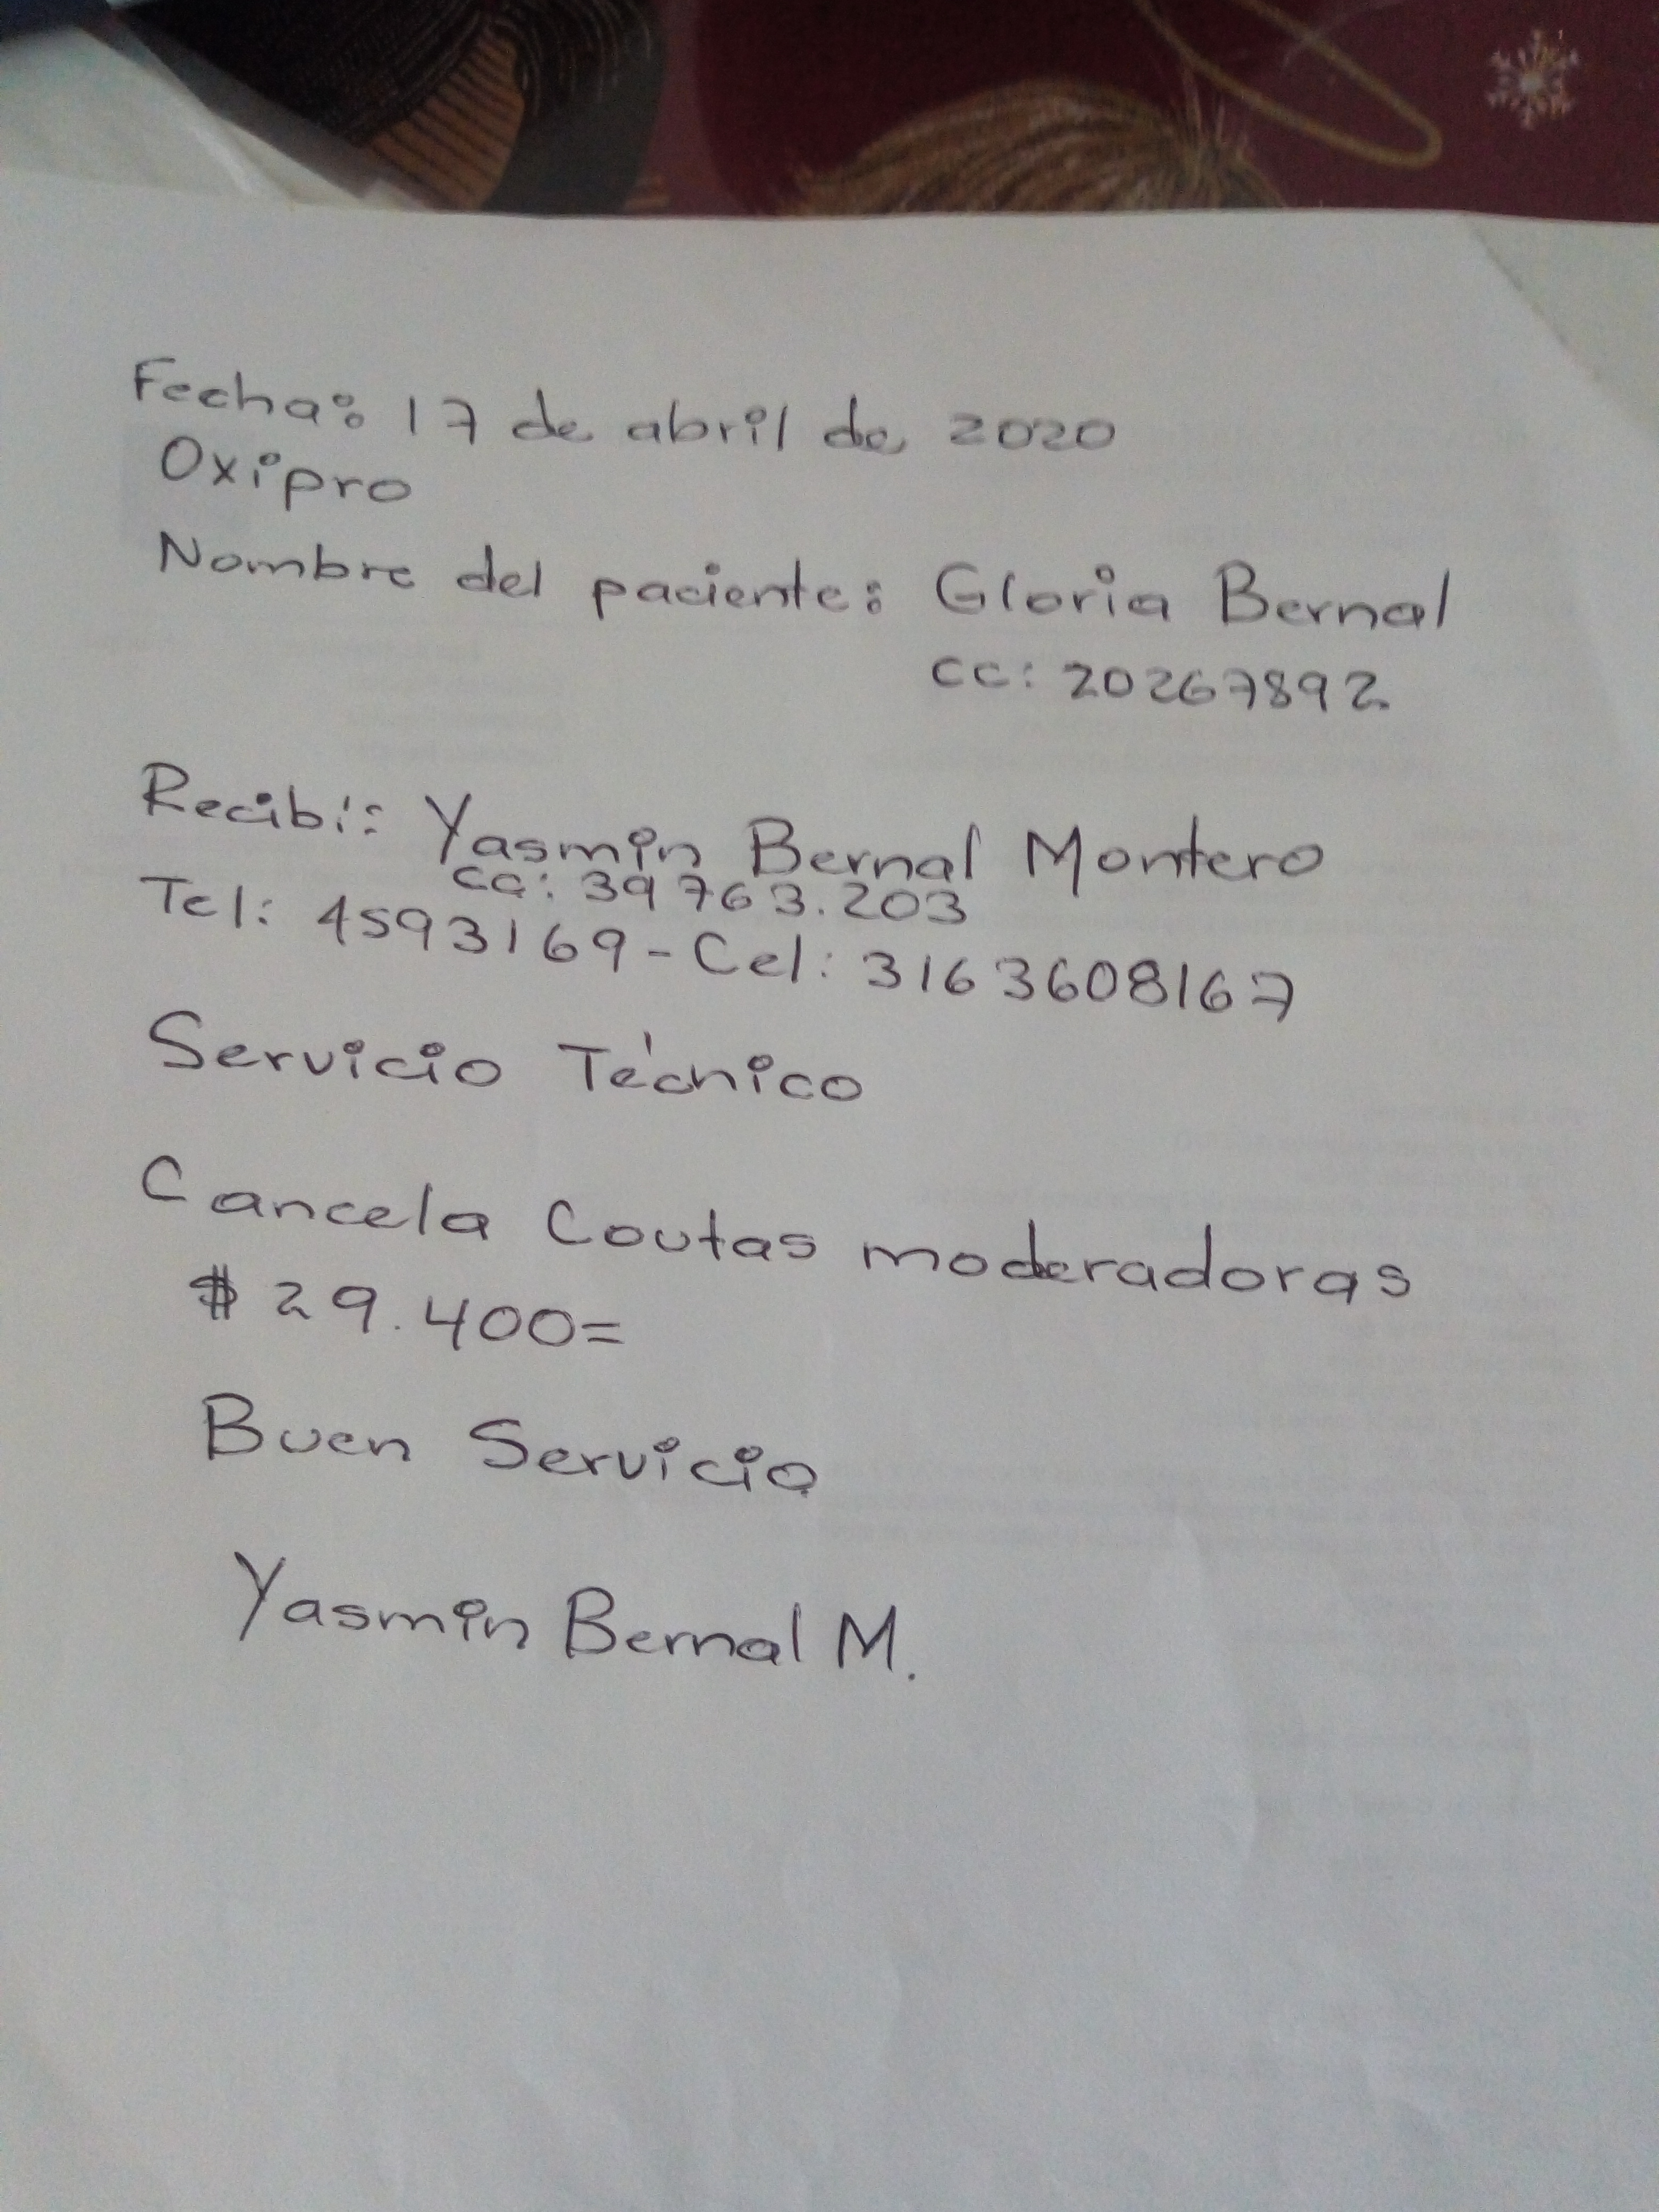 Fecha: 17 de abril de 2020
Oxipro
Nombre del paciente: Gloria Bernal
cc: 20267892
Recibí: Yasmin Bernal Montero
cc: 39763.203
Tel: 4593169 - Cel: 3163608167
Servicio Técnico
Cancela Coutas moderadoras
$ 29.400=
Buen Servicio
Yasmin Bernal M.